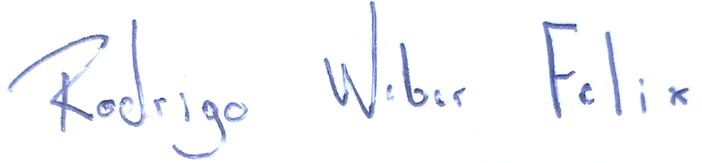 Rodrigo Weber Felix